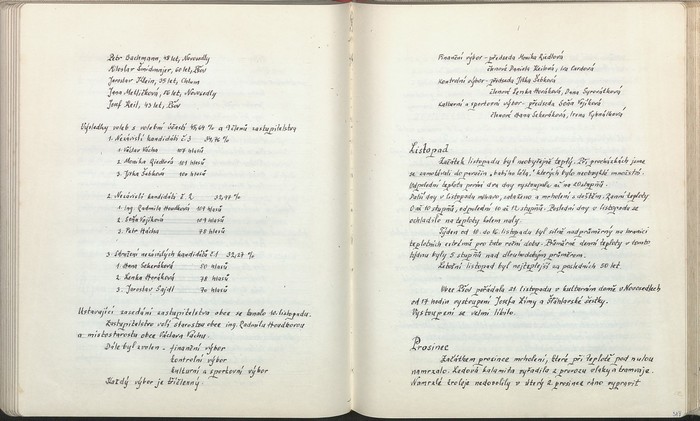 Petr Bachmann, 48 let, Novosedly
Miloslav Šmidmajer, 60 let, Pšov
Jaroslav Klein, 35 let, Chlum
Jana Metličková, 56 let, Novosedly
Josef Keil, 43 let, Pšov
Výsledky voleb s volební účastí 45,64 % a 9členů zastupitelstva
1. Nezávislí kandidáti č. 3 34,76 %
1. Václav Vácha 107 hlasů
2. Monika Riedlová 101 hlasů
3. Jitka Šebková 100 hlasů
2. Nezávislí kandidáti č. 2 32,97 %
1. ing. Radmila Houdková 109 hlasů
2. Soňa Vojíková 109 hlasů
3. Petr Hácha 98 hlasů
3. Sdružení nezávislých kandidátů č. 1 32,27 %
1. Hana Sekeráková 80 hlasů
2. Lenka Horáková 78 hlasů
3. Jaroslav Sajdl 70 hlasů
Ustavující zasedání zastupitelstva obce se konalo 10. listopadu.
Zastupitelstvo volí starostou obce ing. Radmilu Houdkovou
a místostarostu obce Václava Váchu.
Dále byl zvolen - finanční výbor
kontrolní výbor
kulturní a sportovní výbor
Každý výbor je tříčlenný.
Finanční výbor - předseda Monika Riedlová
členové Daniela Keilová, Iva Cardová
Kontrolní výbor - předseda Jitka Šebková
členové Lenka Horáková, Dana
Kulturní a sportovní výbor - předseda Soňa Vojíková
členové Hana Sekeráková, Irena
Listopad
Začátek listopadu byl neobyčejně teplý. Při procházkách jsme
se zamotávali do pavučin „babího léta", kterých bylo neobvyklé množství.
Odpolední teploty první dva dny vystoupily až na 20 stupňů.
Další dny v listopadu mlhavo, zataženo a mrholení s deštěm. Ranní teploty
0 až 10 stupňů, odpolední 10 až 12 stupňů. Poslední dny v listopadu se
ochladilo na teploty kolem nuly.
Týden od 10. do 16. listopadu byl silně nadprůměrný na hranici
teplotních extrémů pro tuto roční dobu. Průměrné denní teploty v tomto
týdnu byly 5 stupňů nad dlouhodobým průměrem.
Letošní listopad byl nejteplejší za posledních 50 let.
Obec Pšov pořádala 21. listopadu v kulturním domě v Novosedlech
od 17. hodin vystoupení Josefa Zímy a Šlahlarské šestky.
Vystoupení se velmi líbilo.
Prosinec
Začátkem prosince mrholení, které při teplotě pod nulou
namrzalo. Ledová kalamita vyřadila z provozu vlaky a tramvaje.
Namrzlé troleje nedovolily v úterý 2. prosince ráno vypravit